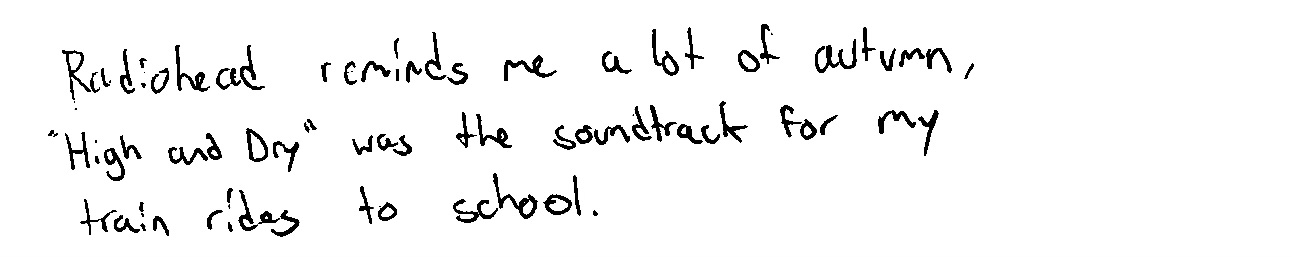 Radiohead reminds me a lot of autumn,
"High and Dry" was the soundtrack for my
train rides to school.